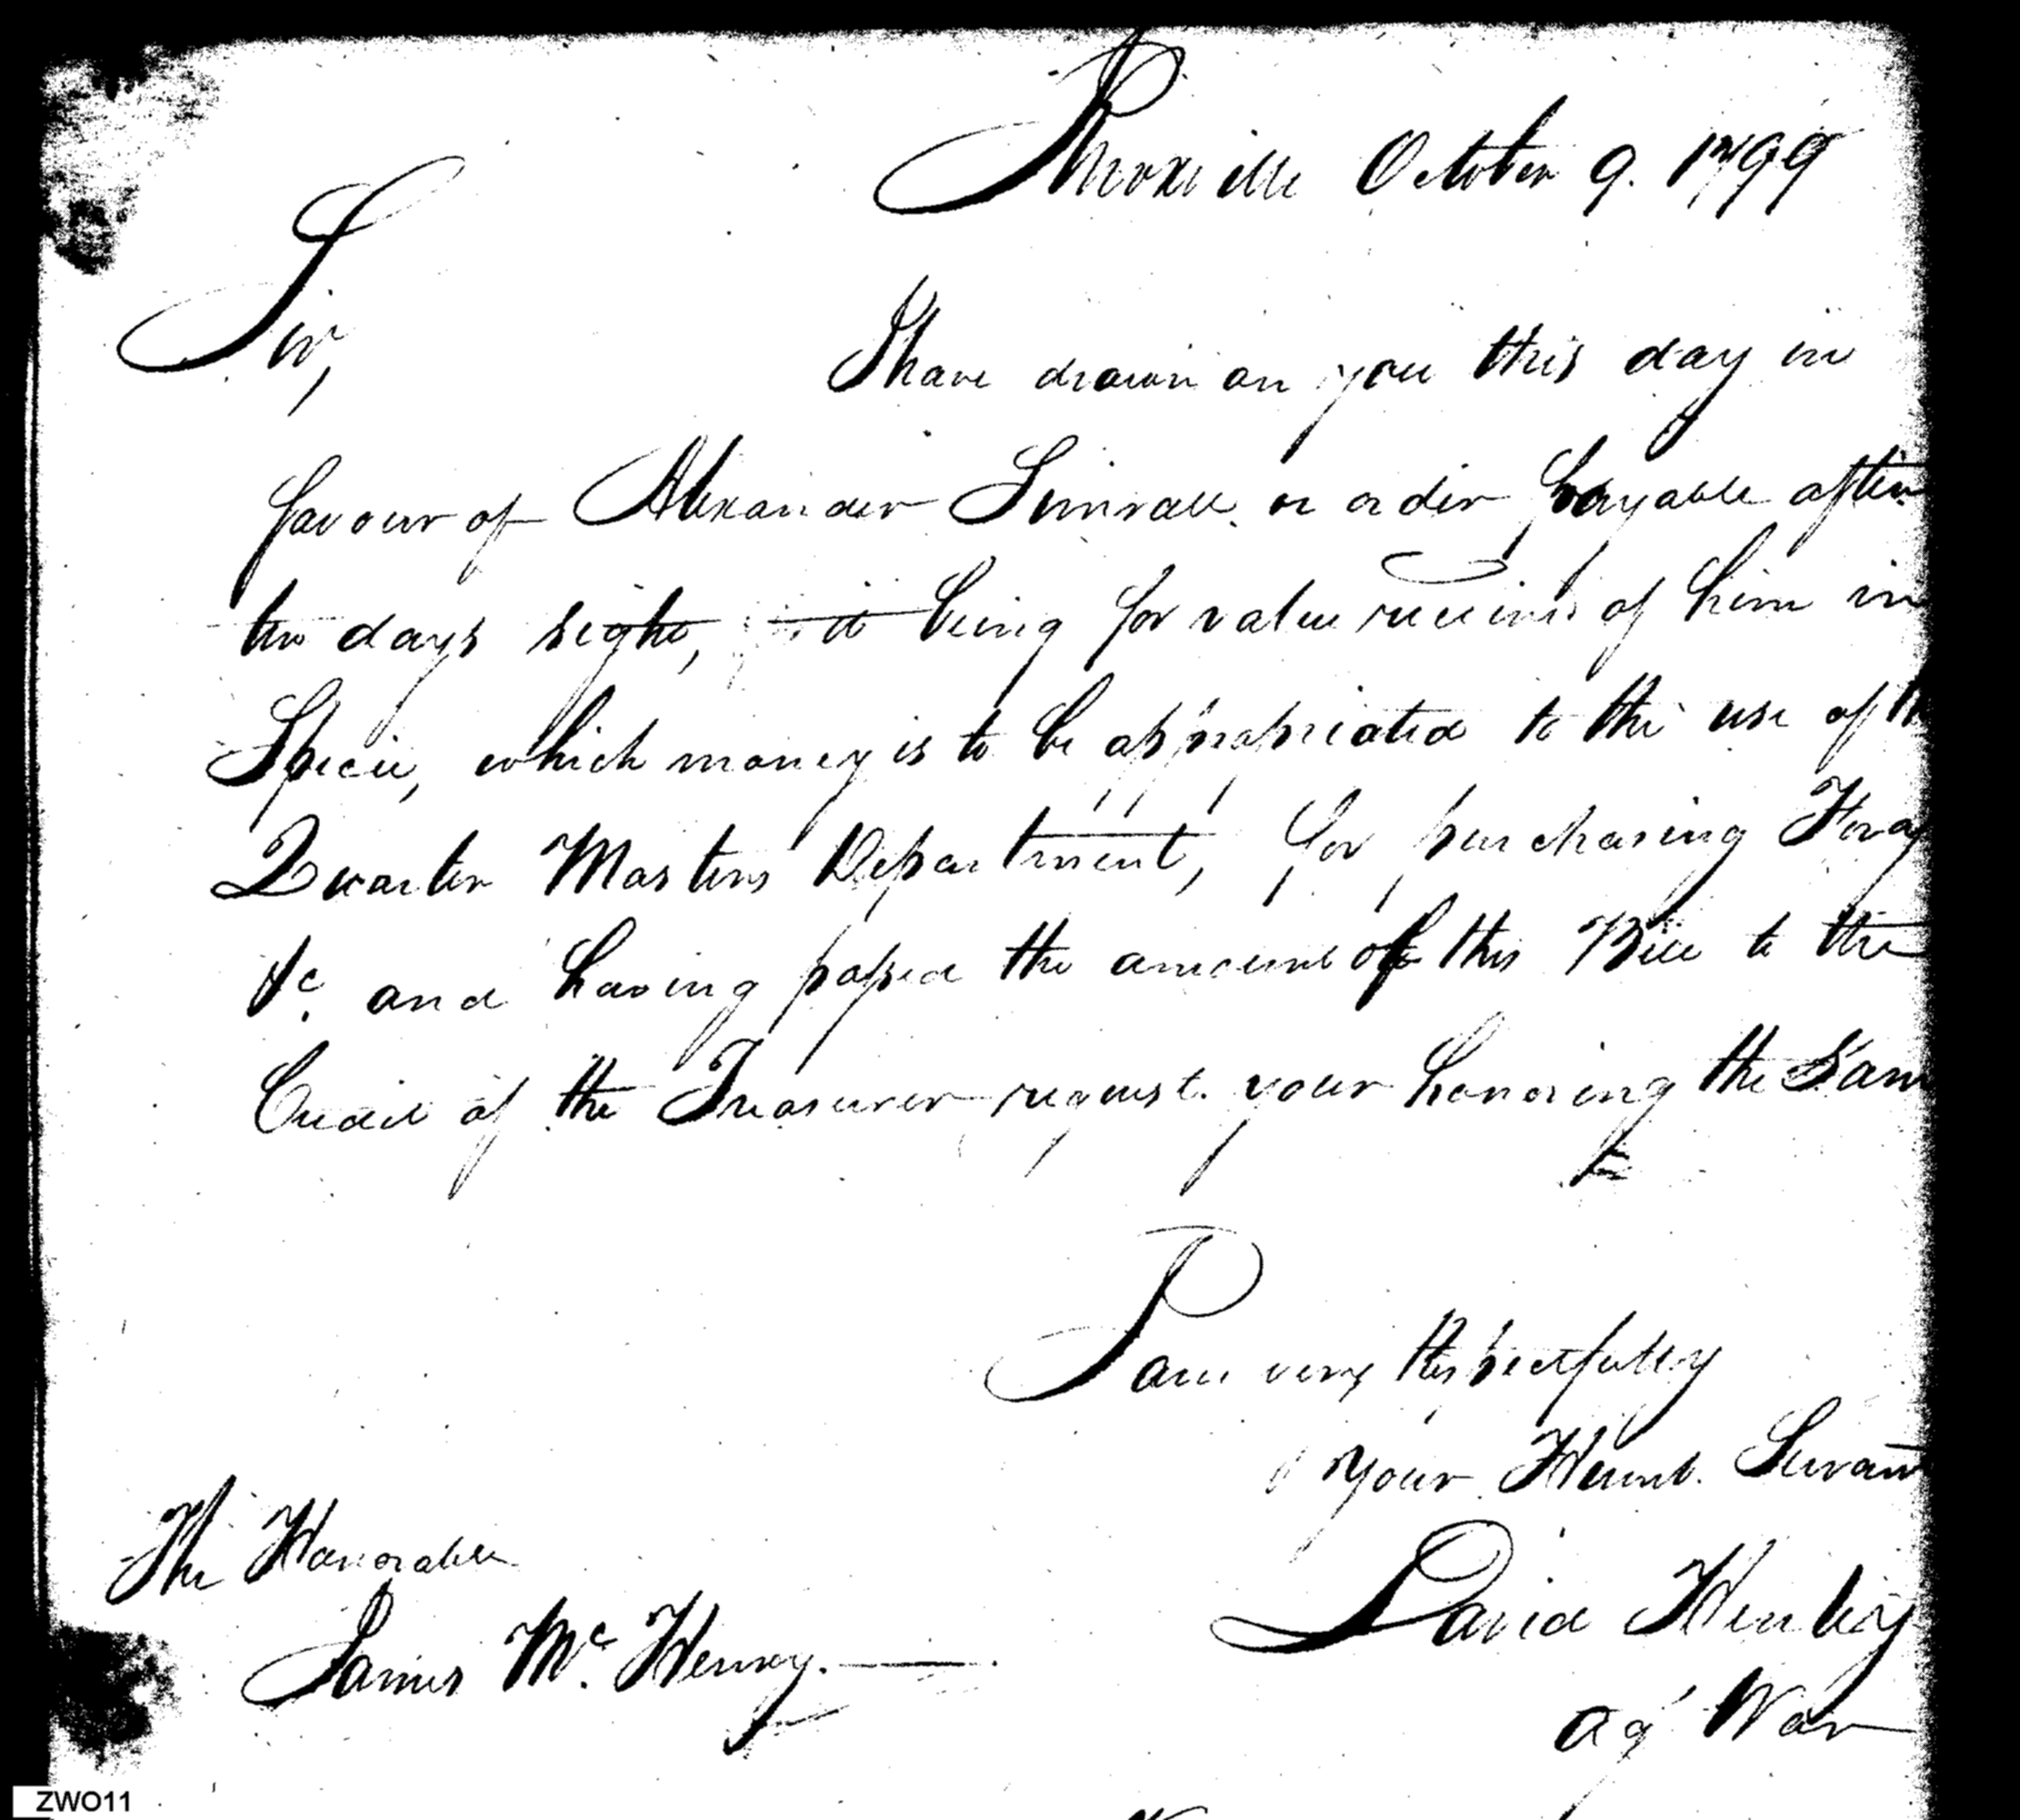 Knoxville October 9. 1799
Sir,
I have drawn on you this day in
favour of Alexander Simrall or order payable after
ten days sight, it being for value received of him in
Specie, which money is to be appropriated to the use of th
Quarter Masters Department, for purchasing Forag
&c. and having passed the amount of this Bill to the
Credit of the Treasurer request your honoring the Same
I am very Respectfully
your Humb. Servant
The Honorable
David Henley
James Mc. Henry.
ag War
ZWO11